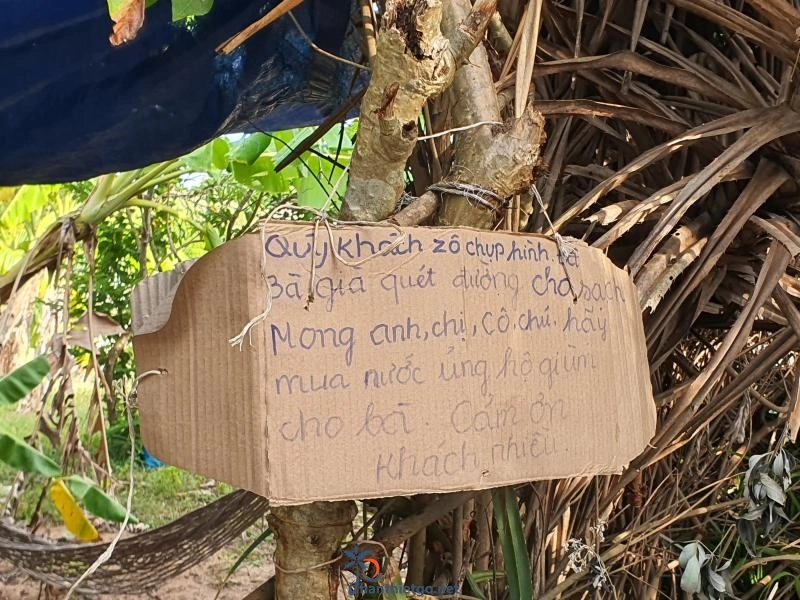 Quý khách zô chụp hình.
Bà già quét đường cho sạch
Mong anh, chị, cô, chú. hãy
mua nước ủng hộ giùm
cho bà. Cảm ơn
khách nhiều.